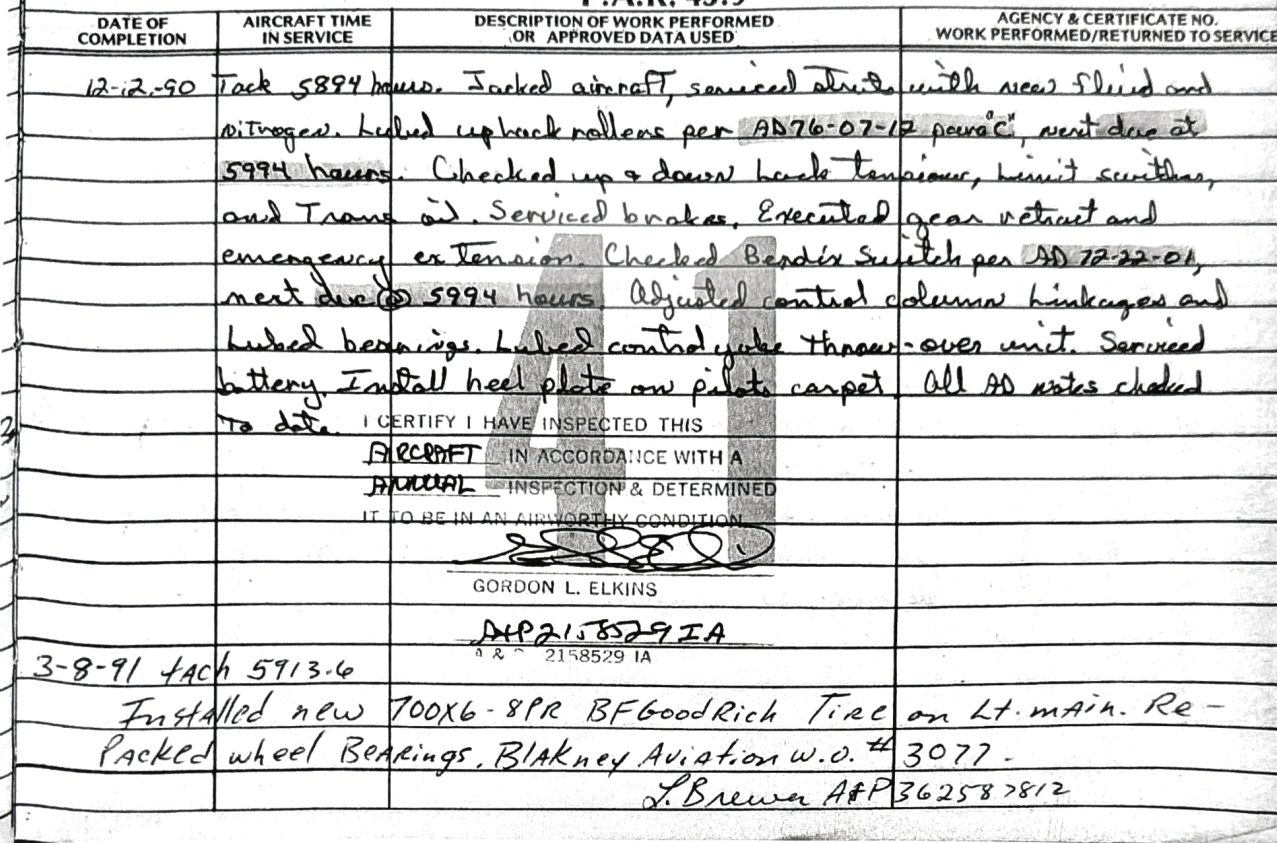 F.A.R. 43.9
DATE OF COMPLETION AIRCRAFT TIME IN SERVICE DESCRIPTION OF WORK PERFORMED OR APPROVED DATA USED AGENCY & CERTIFICATE NO. WORK PERFORMED/RETURNED TO SERVICE
12-12-90 Tack 5894 hours. Jacked aircraft, serviced struts with new fluid and
nitrogen. Lubed uplock rollers per AD 76-07-12 para "C", next due at
5994 hours. Checked up & down lock tensions, limit switches,
and Trans oil. Serviced brakes. Executed gear retract and
emergency extension. Checked Bendix Switch per AD 72-22-01,
next due @ 5994 hours. Adjusted control column linkages and
Lubed bearings. Lubed control yoke throw-over unit. Serviced
battery. Install heel plate on pilots carpet. All AD notes checked
To date.
I CERTIFY I HAVE INSPECTED THIS
AIRCRAFT IN ACCORDANCE WITH A
ANNUAL INSPECTION & DETERMINED
IT TO BE IN AN AIRWORTHY CONDITION
GORDON L. ELKINS
A&P 2158529 IA
A & P 2158529 IA
41
3-8-91 tach 5913.6
Installed new 700X6-8PR BFGoodRich Tire on Lt. main. Re-
Packed wheel Bearings. Blakney Aviation w.o. # 3077.
L. Brewer A&P 362587812